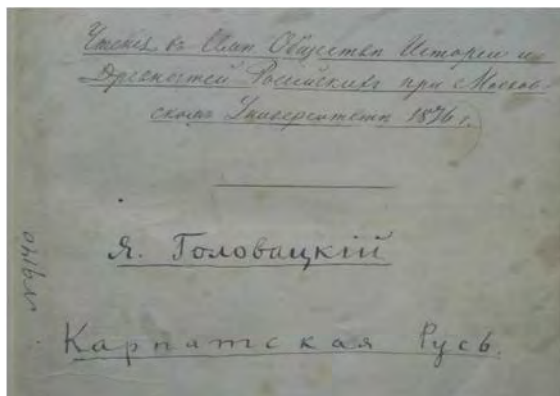 Чтенія въ Имп. Обществѣ Исторіи и
Древностей Россійскихъ при Москов-
скомъ Университетѣ 1876 г.
Я. Головацкій
Карпатская Русь.